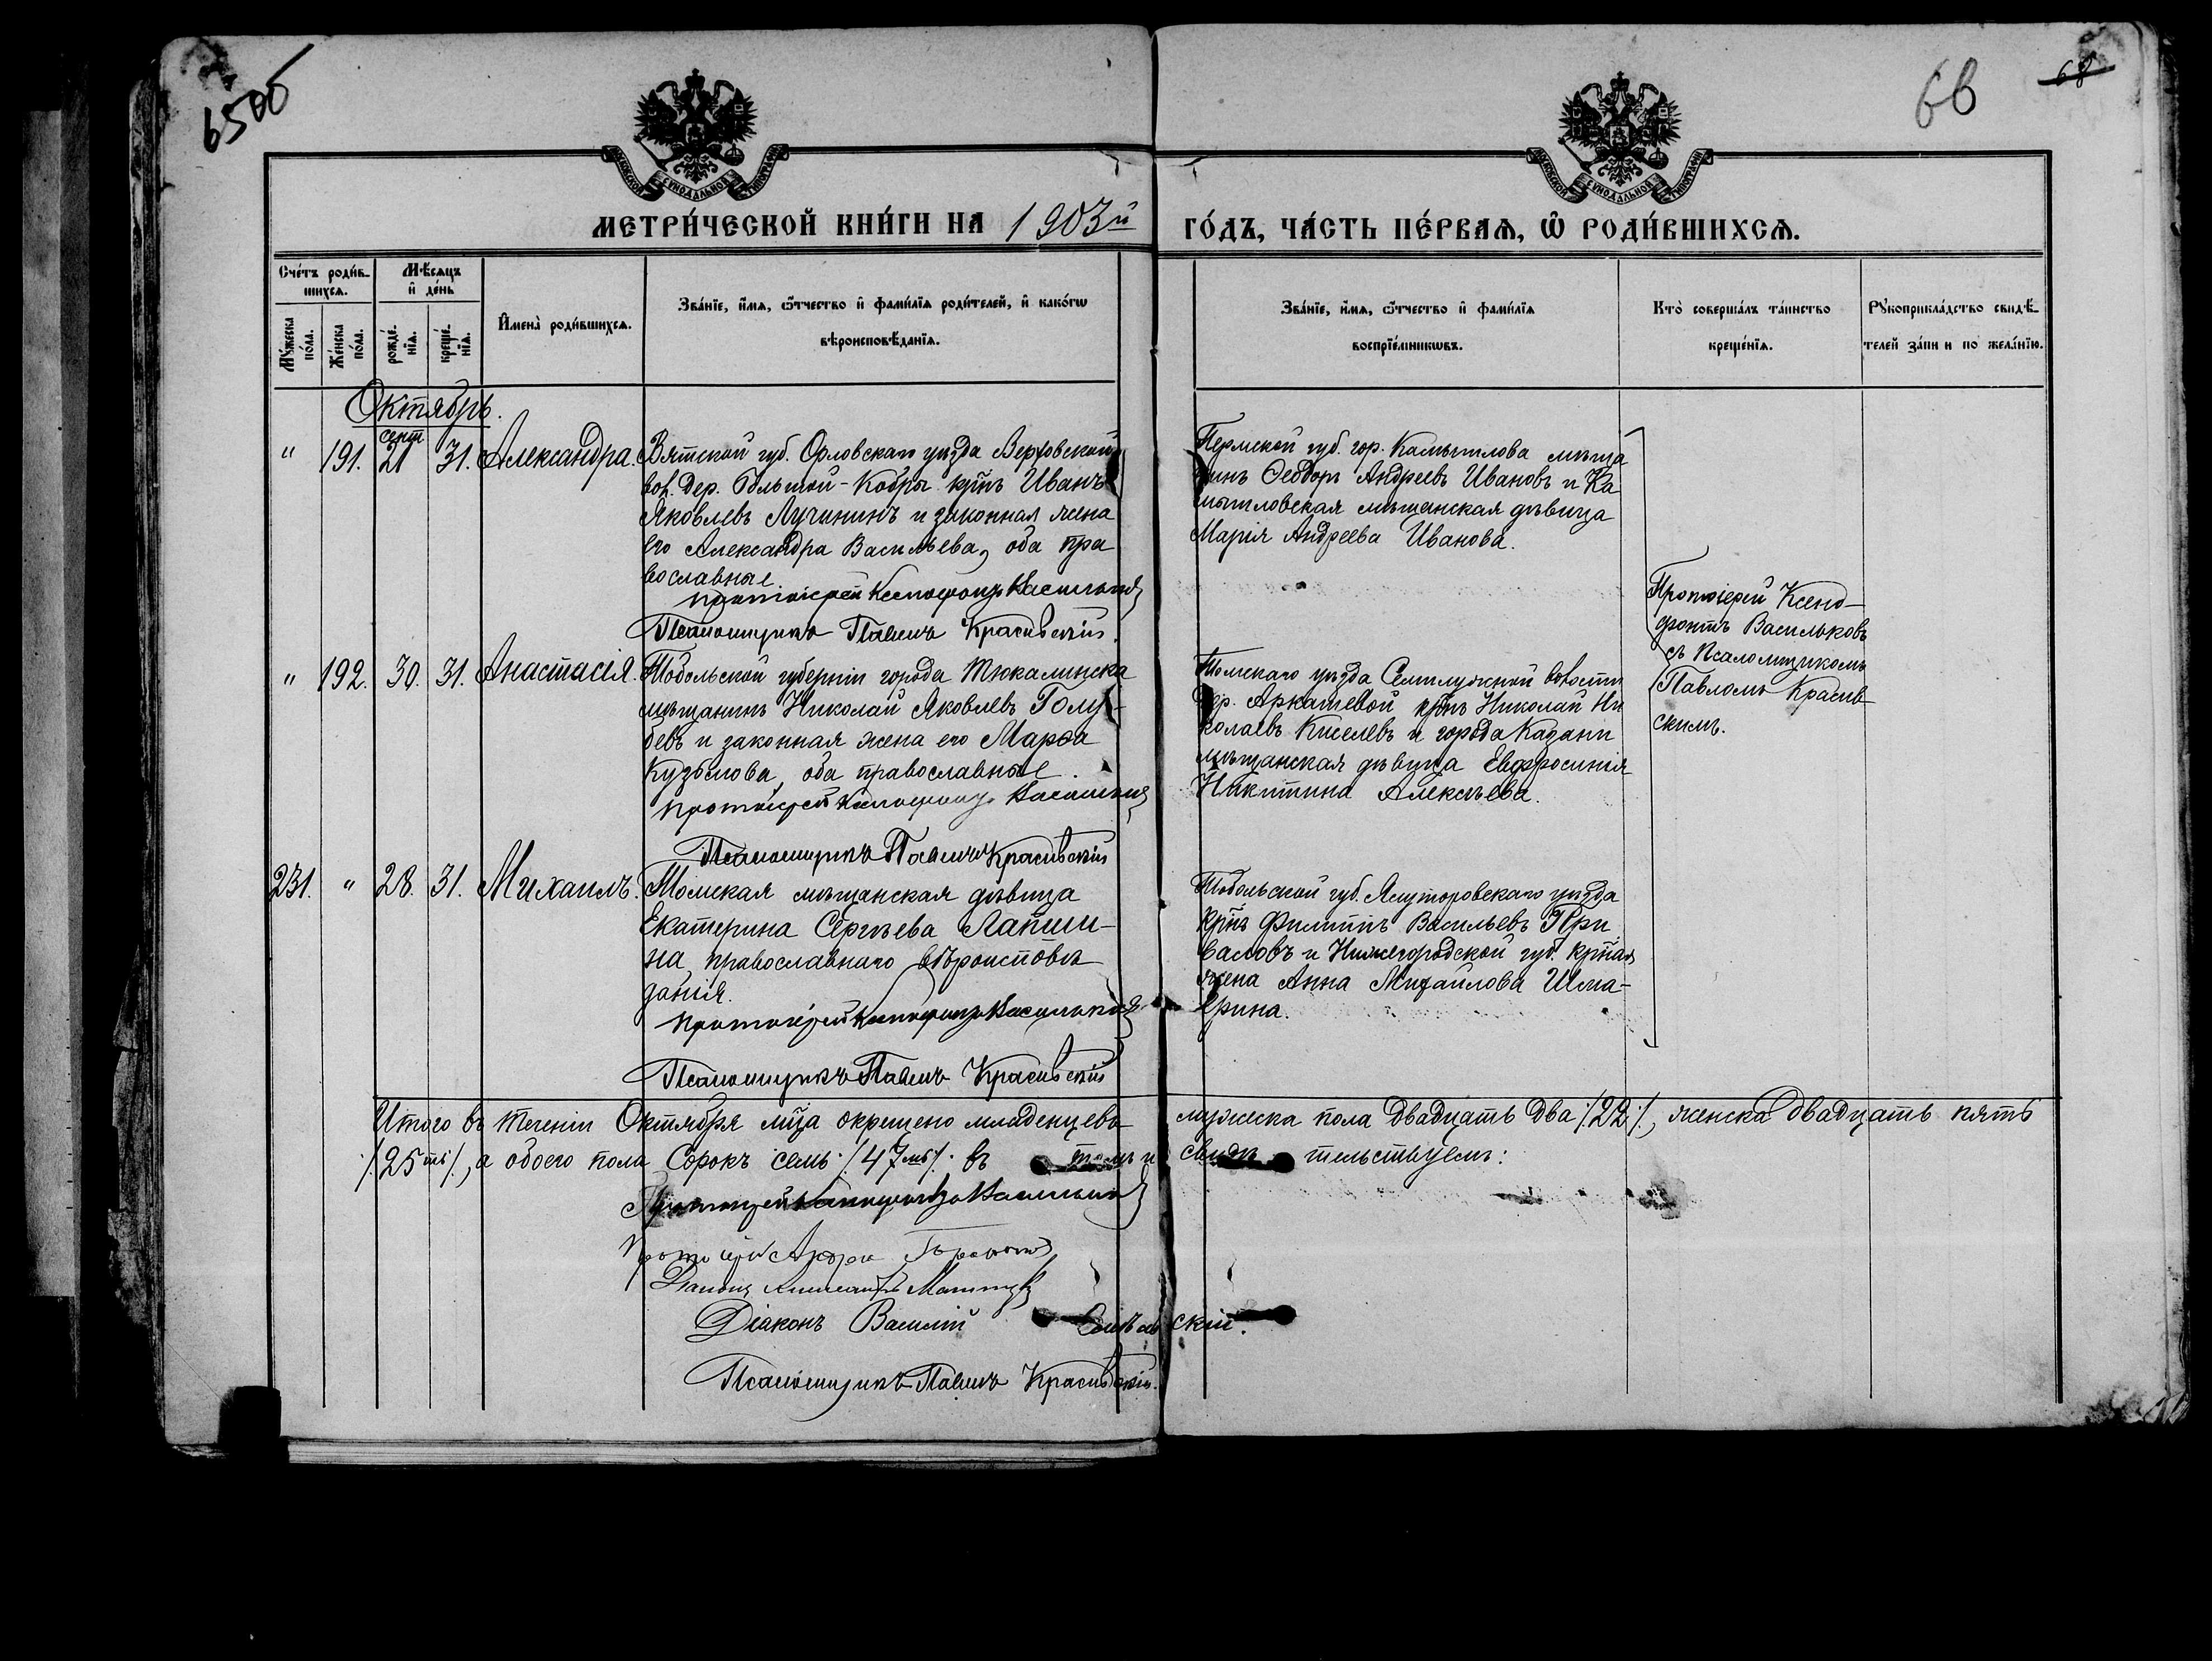 65об
66
68
МОСКОВСКОЙ СѴНОДАЛЬНОЙ ТИПОГРАФІИ
МОСКОВСКОЙ СѴНОДАЛЬНОЙ ТИПОГРАФІИ
МЕТРИ́ЧЕСКОЙ КНИ́ГИ НА 1903й ГО́ДЪ, ЧА́СТЬ ПЕ́РВАЯ, Ѡ РОДИ́ВШИХСѦ.
Сче́тъ роди́в-
шихсѧ.
Мѣ́сѧцъ
и де́нь
Мꙋ́жеска
по́ла.
Же́нска
по́ла.
рожде́-
нїѧ.
креще́-
нїѧ.
Имена̀ роди́вшихсѧ.
Зва́нїе, и́мѧ, ѻ́тчество и фами́лїѧ роди́телей, и како́гѡ
вѣроисповѣ́данїѧ.
Зва́нїе, и́мѧ, ѻ́тчество и фами́лїѧ
воспрїе́мникѡвъ.
Кто̀ соверша́лъ та́инство
креще́нїѧ.
Рꙋкоприкла́дство свидѣ́-
телей за́писи по жела́нїю.
Октябрь.
" 191. сент 21 31. Александра.
Вятской губ. Орловскаго уѣзда Верховской
вол. дер. Большой-Кобры крнъ Иванъ
Яковлевъ Лучининъ и законная жена
его Александра Васильева, оба пра
вославные
Протоіерей Ксенофонтъ Васильковъ
Псаломщикъ Павелъ Красивскій.
Пермской губ. гор. Камышлова мѣща
нинъ Ѳеодоръ Андреевъ Ивановъ и Ка
мышловская мѣщанская дѣвица
Марія Андреева Иванова.
Протоіерей Ксено-
фонтъ Васильковъ
съ Псаломщикомъ
Павломъ Красив
скимъ.
" 192. 30. 31. Анастасія.
Тобольской губерніи города Тюкалинска
мѣщанинъ Николай Яковлевъ Голу-
бевъ и законная жена его Марѳа
Кузьмова, оба православные.
Протоіерей Ксенофонтъ Васильковъ
Псаломщикъ Павелъ Красивскій
Томскаго уѣзда Семилужной волости
дер. Аркашевой крнъ Николай Ни
колаевъ Киселевъ и города Казани
мѣщанская дѣвица Евфросинія
Никитина Алексѣева.
231. " 28. 31. Михаилъ.
Томская мѣщанская дѣвица
Екатерина Сергѣева Лапши-
на, православнаго вѣроисповѣ
данія.
Протоіерей Ксенофонтъ Васильковъ
Псаломщикъ Павелъ Красивскій
Тобольской губ. Ялуторовскаго уѣзда
крнъ Филиппъ Васильевъ При
валовъ и Нижегородской губ. крная
жена Анна Михайлова Шма-
грина.
Итого въ теченіи Октября мца окрещено младенцевъ мужеска пола двадцать два /22/, женска двадцать пять
/25ть/, а обоего пола сорокъ семь /47мь/. въ томъ и свидѣтельствуемъ:
Протоіерей Ксенофонтъ Васильковъ
Протоіерей
Діаконъ Василій скій.
Псаломщикъ Павелъ Красивскій.